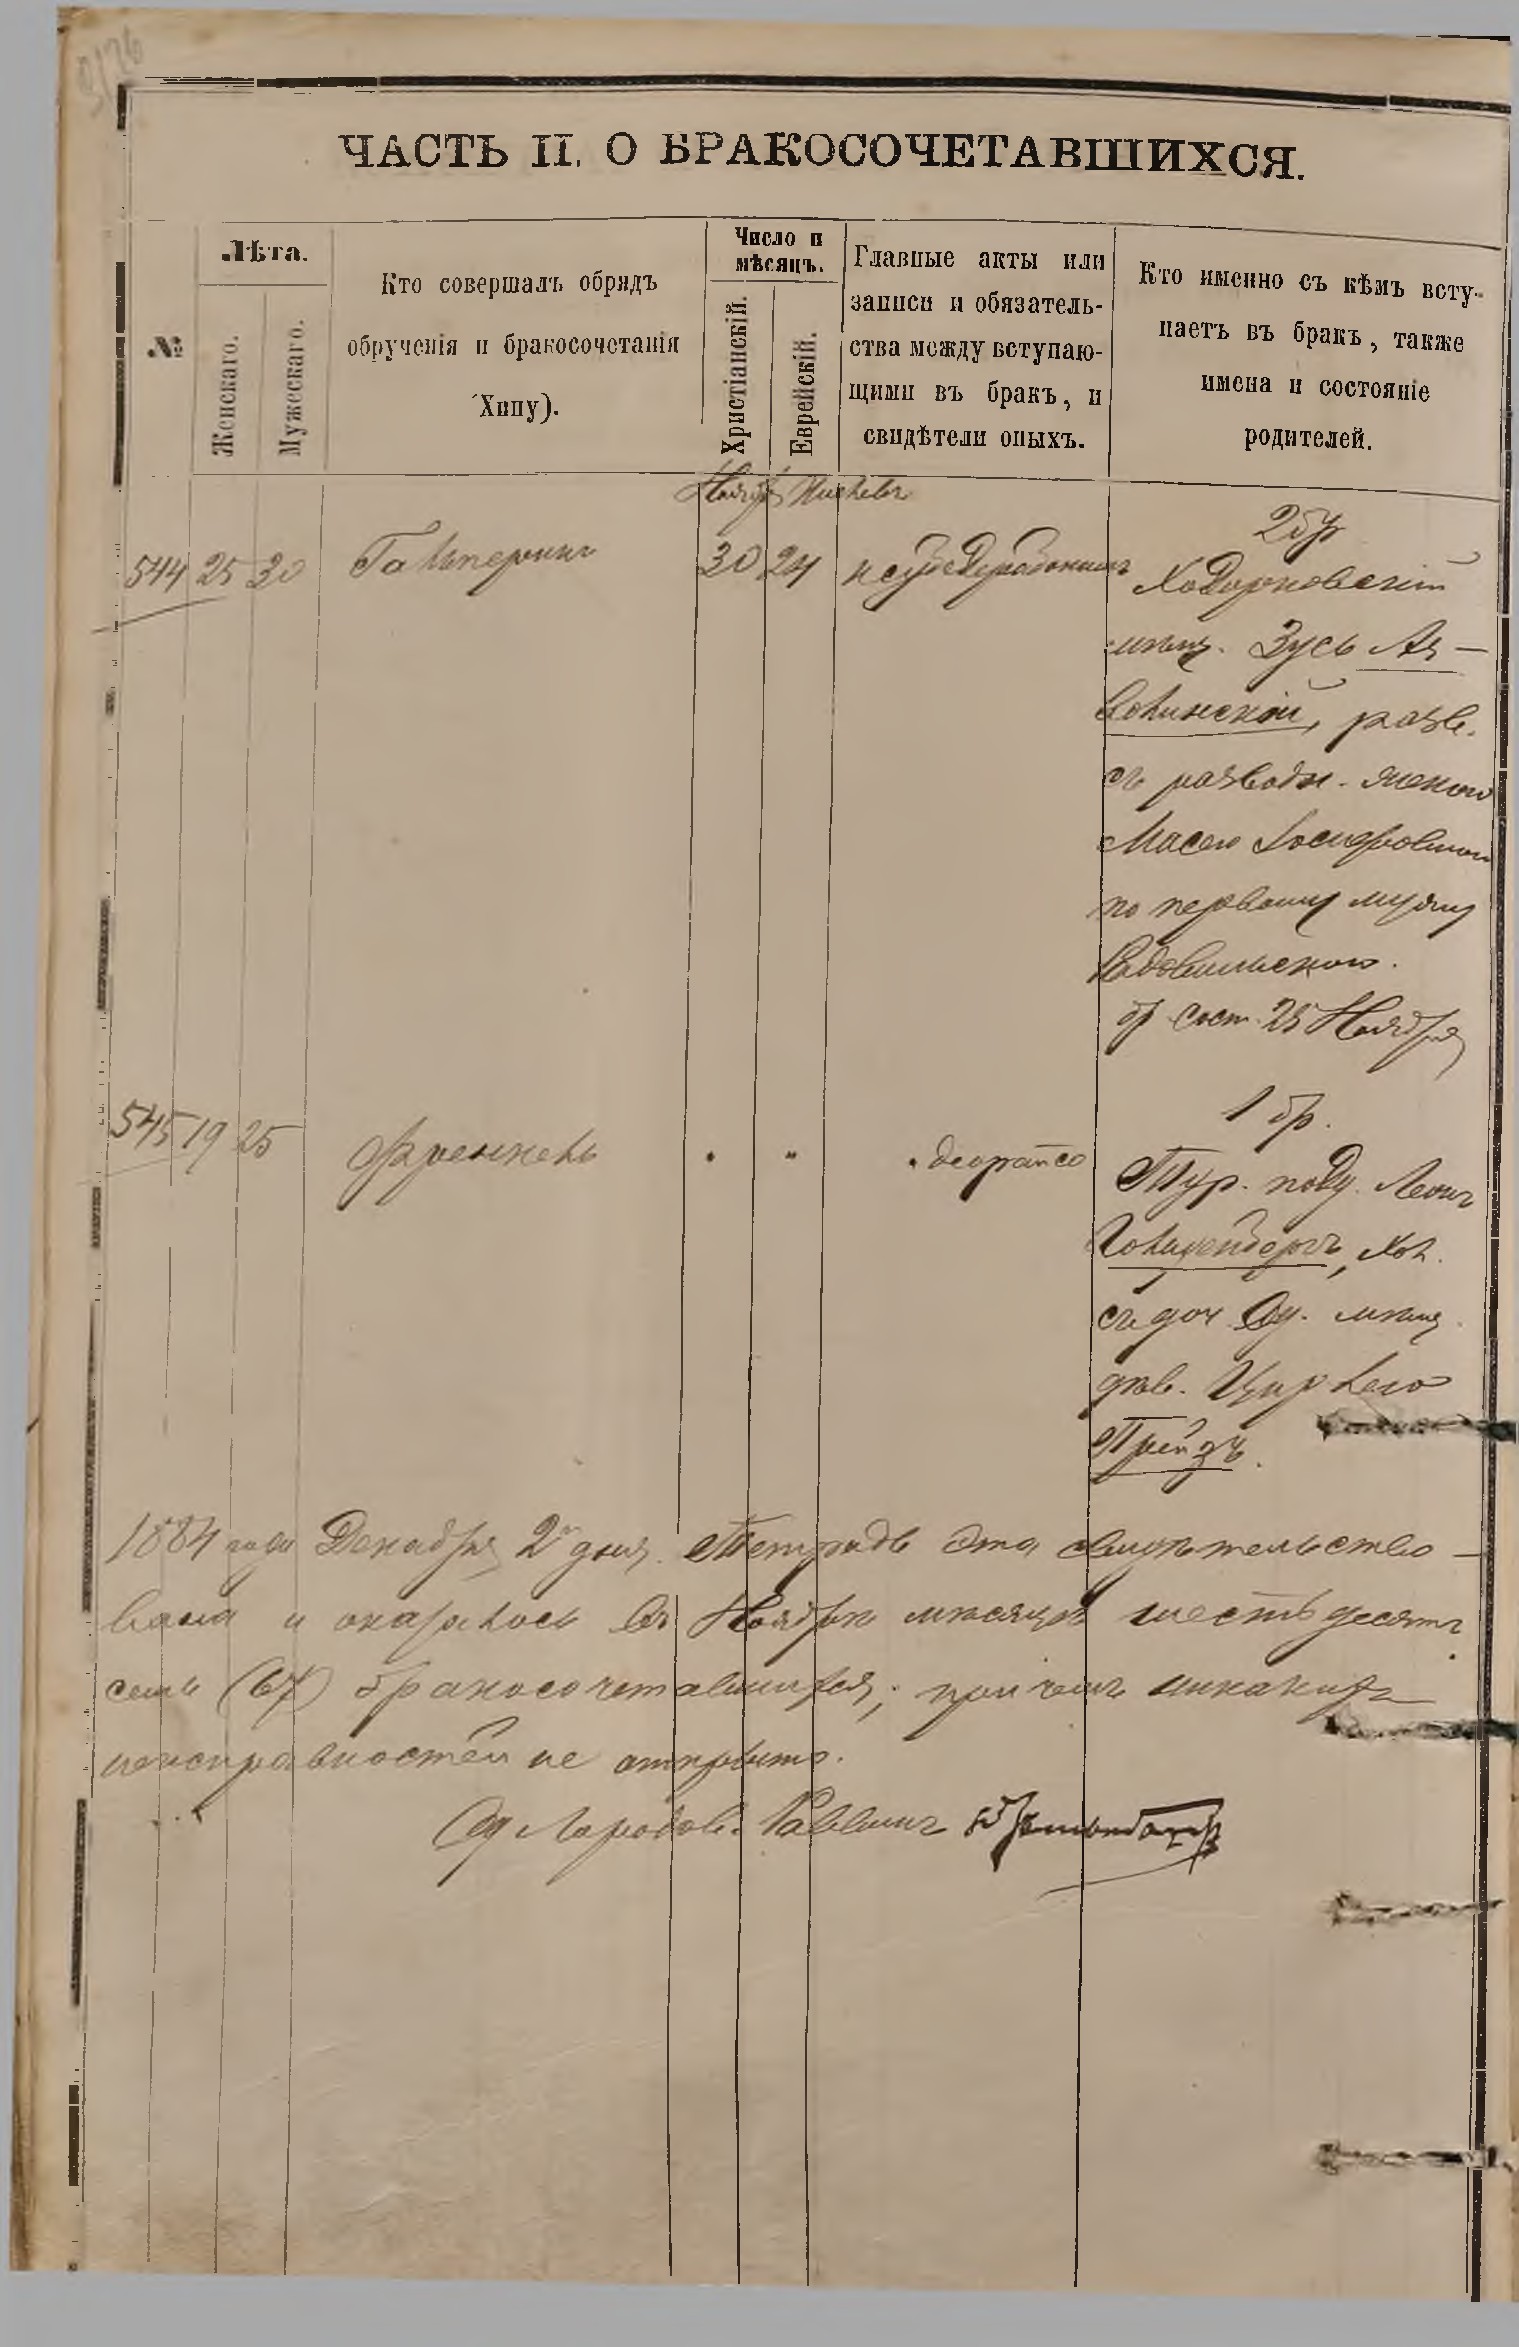 ЧАСТЬ II. О БРАКОСОЧЕТАВШИХСЯ.
№
Лѣта.
Женскаго.
Мужескаго.
Кто совершалъ обрядъ
обрученія и бракосочетанія
Хипу).
Число и
мѣсяцъ.
Христіанскій.
Еврейскій.
Главные акты или
записи и обязатель-
ства между вступаю-
щими въ бракъ, и
свидѣтели оныхъ.
Кто именно съ кѣмъ всту-
паетъ въ бракъ, также
имена и состояніе
родителей.
Ноябр Кислевъ
544 25 30 Гальперинъ 30 24
2 бр
Ходорковскій
мѣщ. Зусь Ля-
ховинскій, разв.
съ разводн. женою
Масею Іосифовною
по первому мужу
бр сост. 25 Ноября
545 19 25 Френкель " "
1 бр.
Тур. подд. Леонъ
Гольденбергъ, хол.
съ доч. Од. мѣщ.
дѣв. Цирлею
Трейзъ.
1884 года Декабря 2 дня. Тетрадь эта свидѣтельство-
вана и оказалось въ Ноябрѣ мѣсяцѣ шестьдесятъ
семь (67) бракосочетавшихся; при чемъ никакихъ
неисправностей не открыто.
Од Городов. Раввинъ